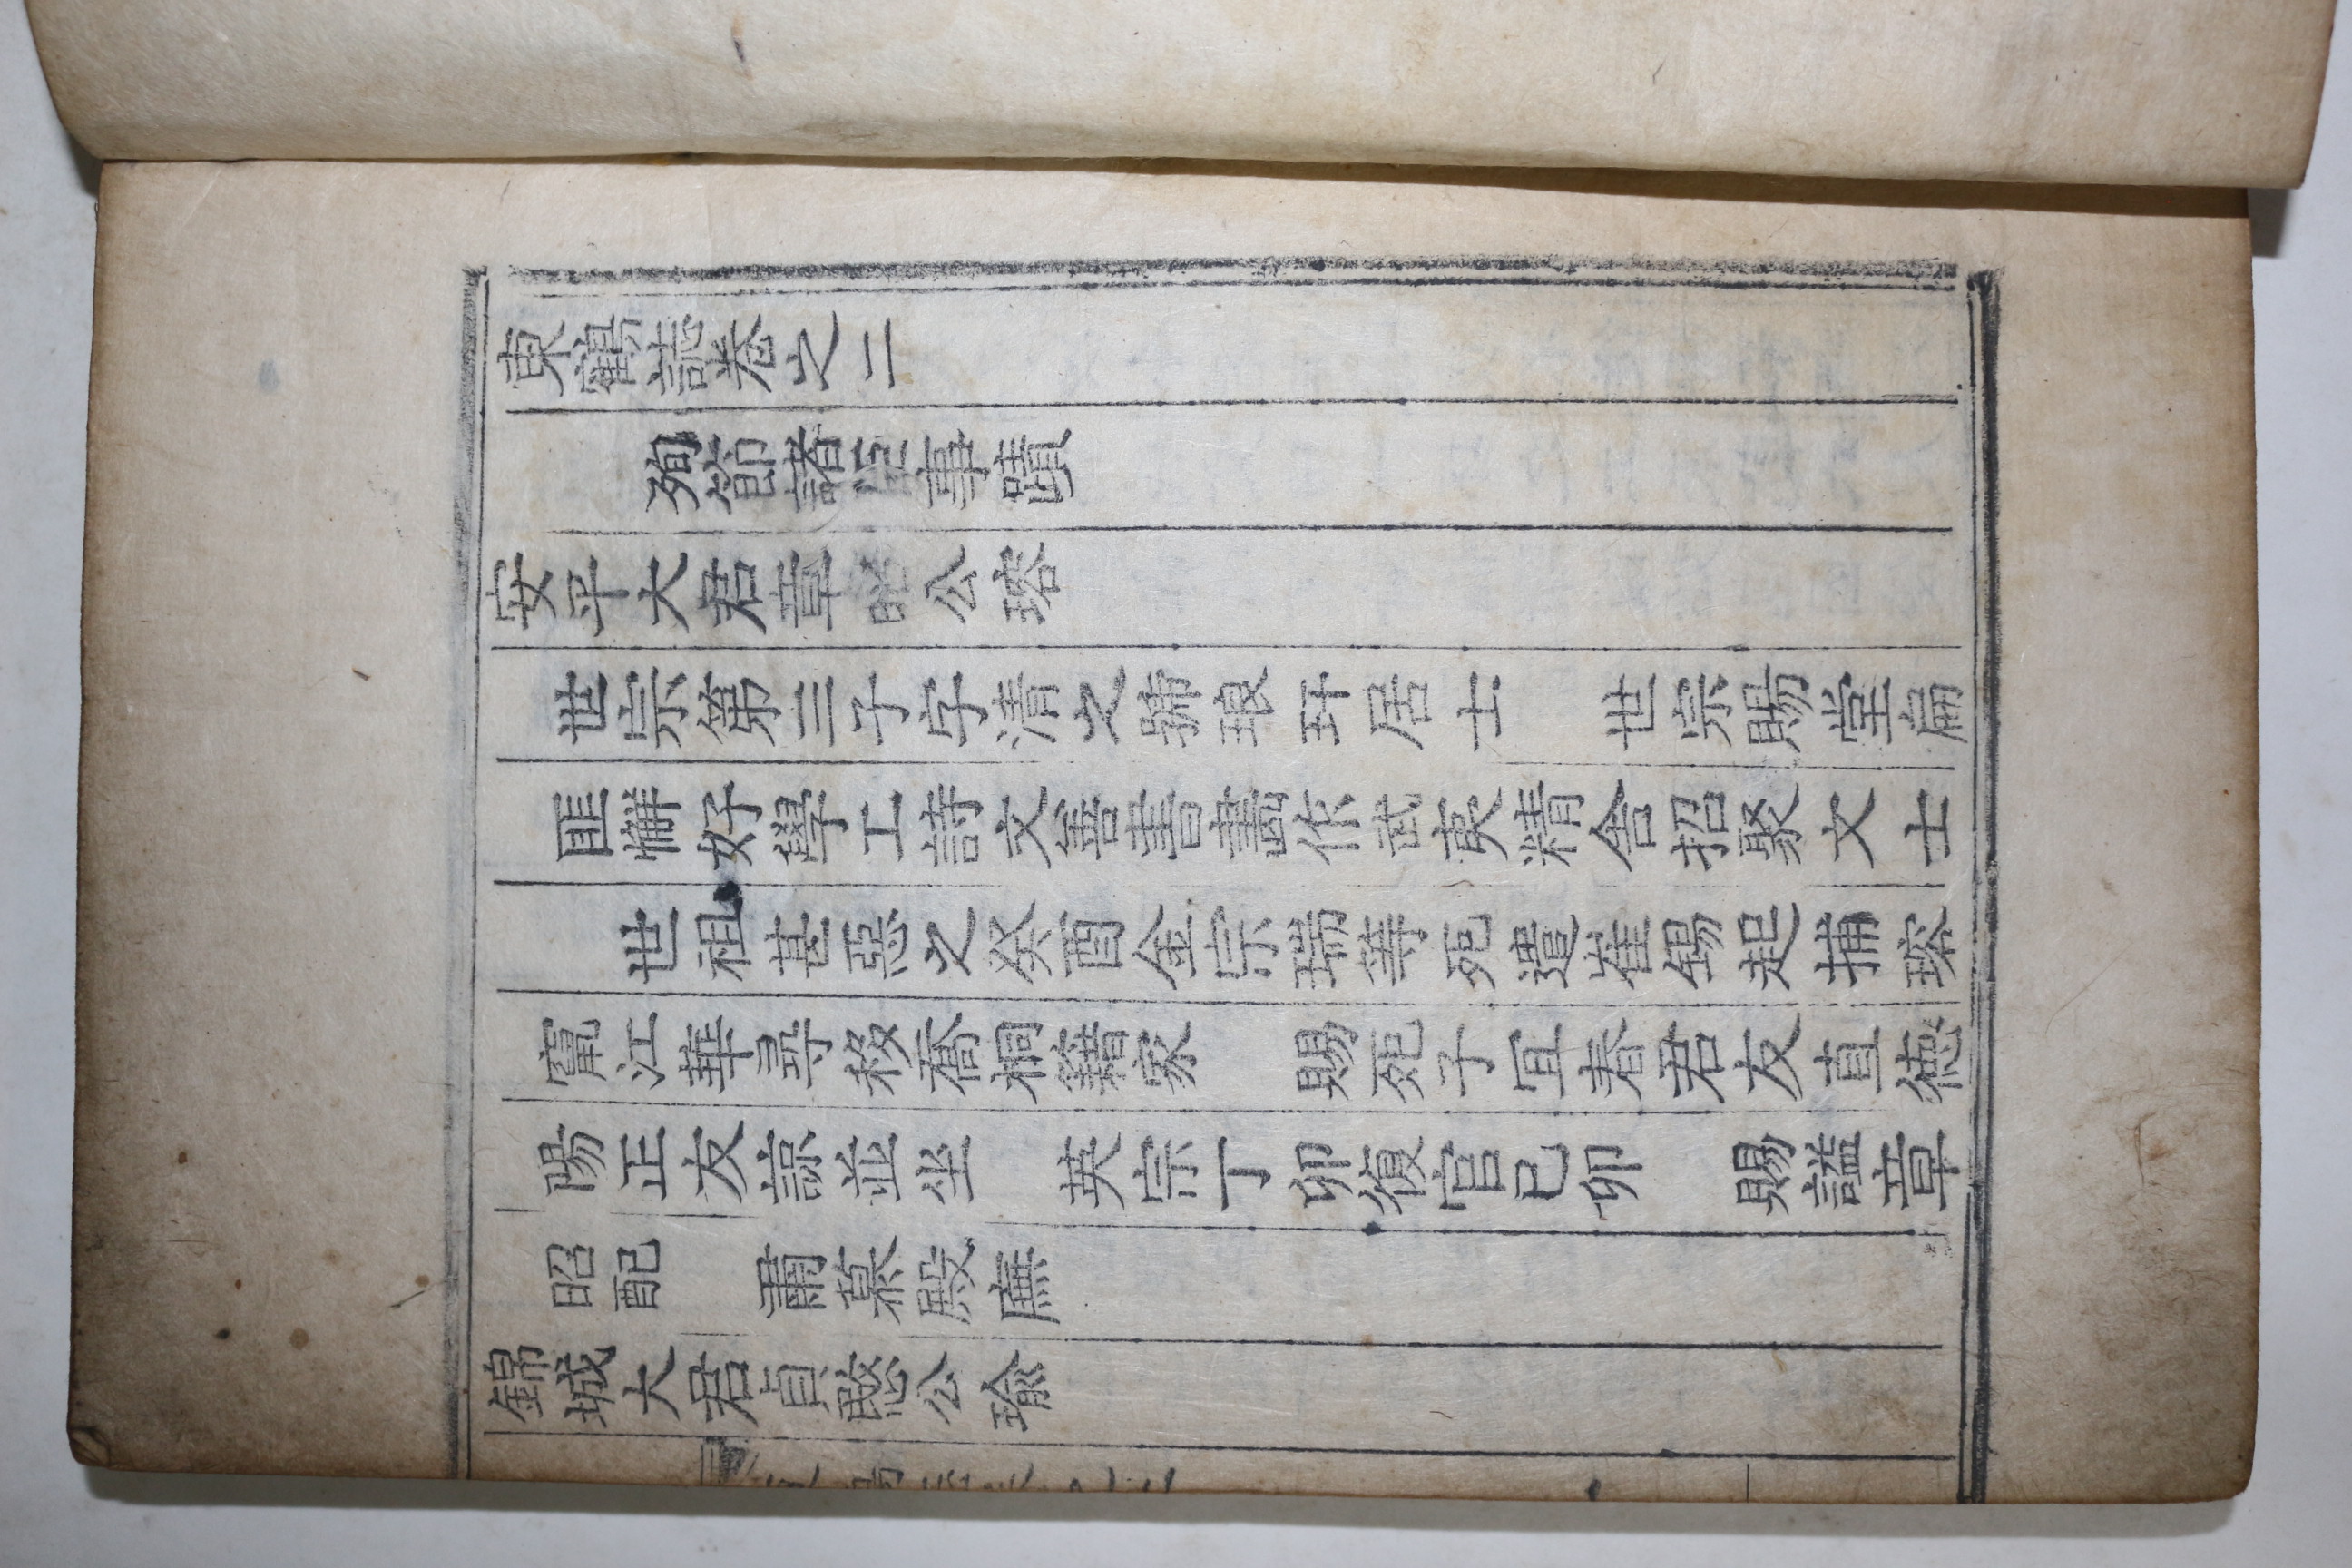 東鶴誌卷之二
殉節諸臣事蹟
安平大君章昭公瑢
世宗第三子字淸之號琅玕居士 世宗賜堂扁
匪懈好學工詩文善書畵作武夷精舍招聚文士
世祖甚惡之癸酉金宗瑞等死遣崔錫起捕瑢
竄江華尋移喬桐籍家 賜死子宜春君友直德
陽正友諒並坐 英宗丁卯復官己卯 賜謚章
昭配 肅慕殿廡
錦城大君貞愍公瑜